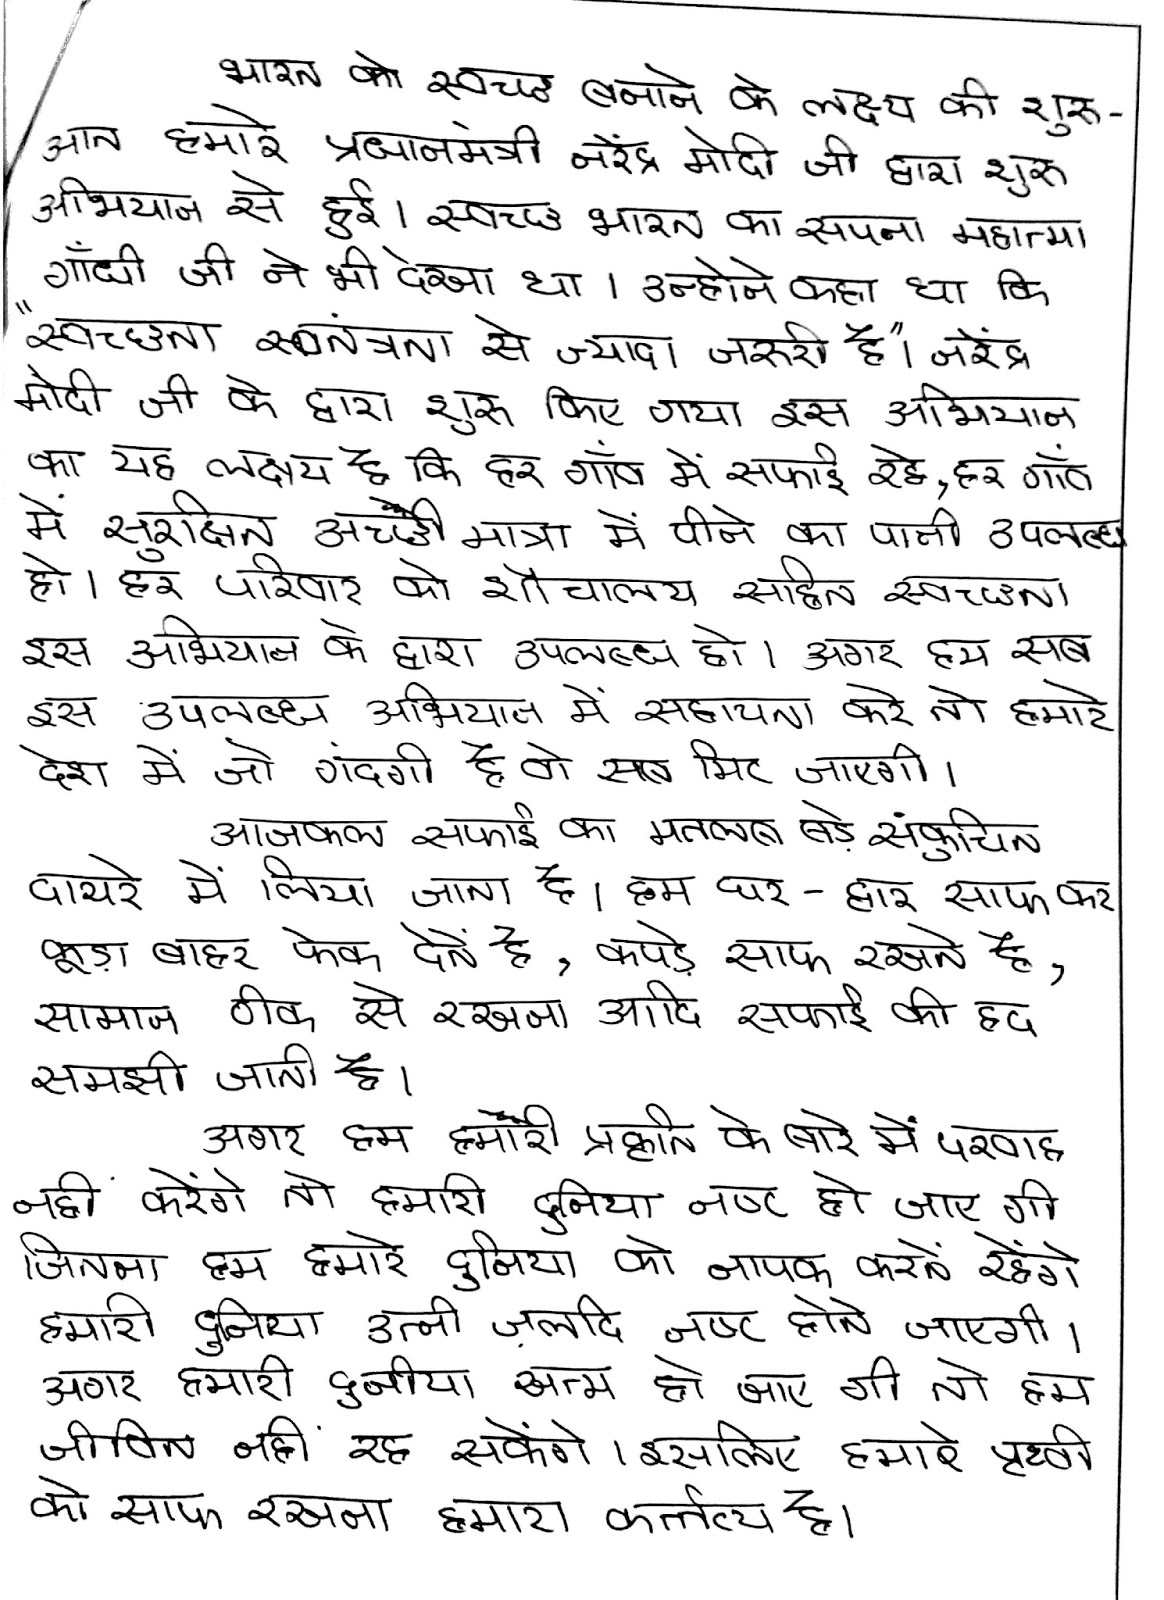 भारत को स्वच्छ बनाने के लक्ष्य की शुरु-
आत हमारे प्रधानमंत्री नरेंद्र मोदी जी द्वारा शुरु
अभियान से हुई। स्वच्छ भारत का सपना महात्मा
गाँधी जी ने भी देखा था। उन्होने कहा था कि
"स्वच्छता स्वतंत्रता से ज्यादा जरुरी है"। नरेंद्र
मोदी जी के द्वारा शुरु किए गया इस अभियान
का यह लक्षय है कि हर गाँव में सफाई रहे, हर गाँव
में सुरक्षित अच्छी मात्रा में पीने का पानी उपलब्ध
हो। हर परिवार को शौचालय सहित स्वच्छता
इस अभियान के द्वारा उपलब्ध हो। अगर हम सब
इस उपलब्ध अभियान में सहायता करे तो हमारे
देश में जो गंदगी है वो सब मिट जाएगी।
आजकल सफाई का मतलब बड़े संकुचित
दायरे में लिया जाता है। हम घर - द्वार साफ कर
कूड़ा बाहर फेक देतें है, कपड़े साफ रखते है,
सामान ठीक से रखना आदि सफाई की हद
समझी जाती है।
अगर हम हमारी प्रकृति के बारे में परवाह
नहीं करेंगे तो हमारी दुनिया नष्ट हो जाए गी
जितना हम हमारे दुनिया को नापक करतें रहेंगे
हमारी दुनिया उतनी ज़लदि नष्ट होते जाएगी।
अगर हमारी दुनीया खत्म हो जाए गी तो हम
जीवित नहीं रह सकेंगे। इसलिए हमारे पृथ्वी
को साफ रखना हमारा कर्त्तव्य है।